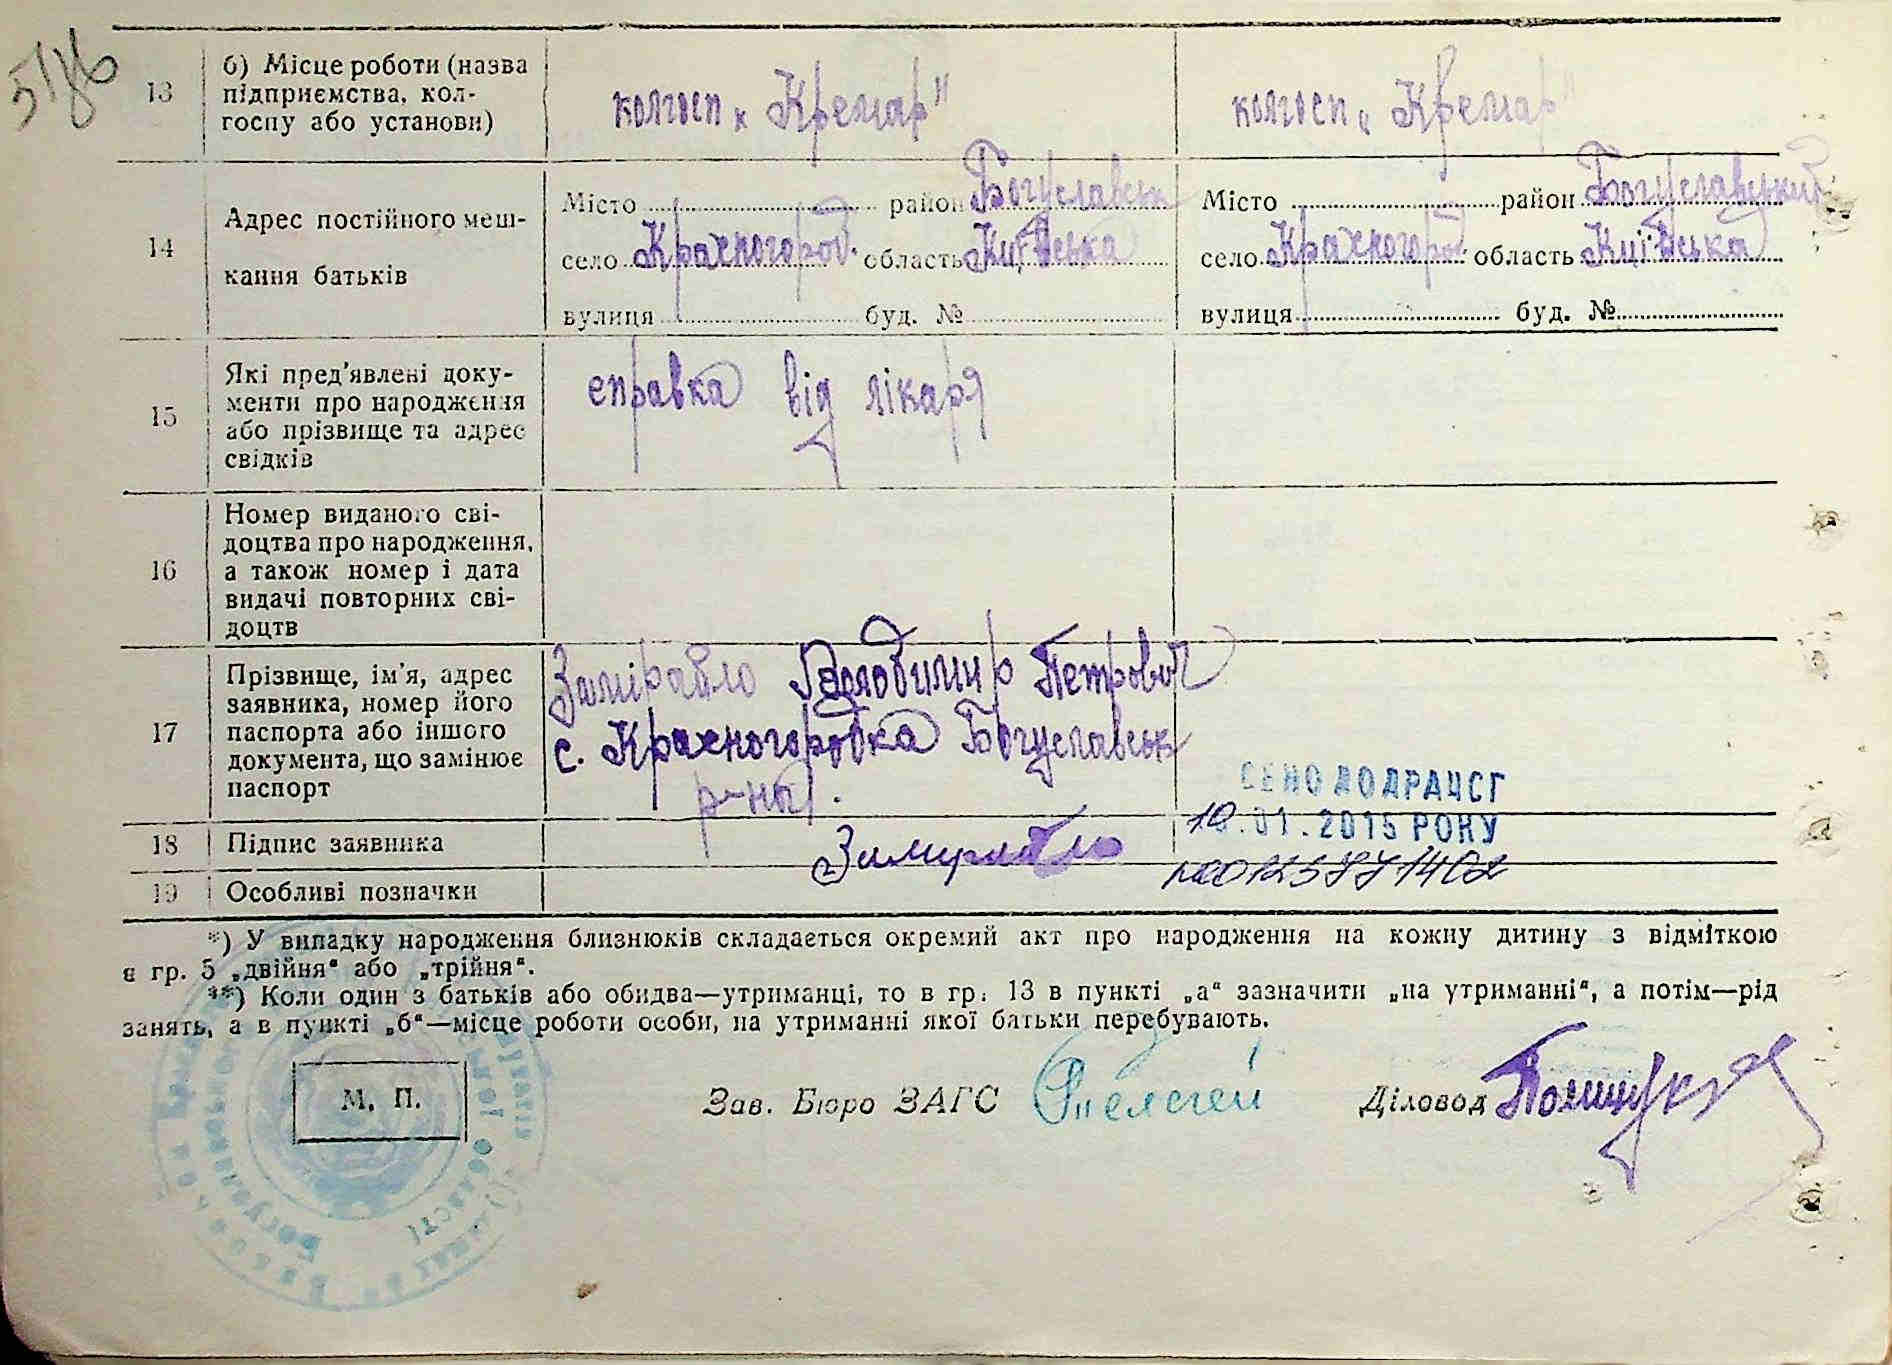 13
б) Місце роботи (назва
підприємства, кол-
госпу або установи)
колгосп „Кремар"
колгосп „Кремар"
14
Адрес постійного меш-
кання батьків
Місто район Богуславськ
село Красногород. область Київська
вулиця буд. №
Місто район Богуславський
село Красногород. область Київська
вулиця буд. №
15
Які пред'явлені доку-
менти про народження
або прізвище та адрес
свідків
справка від лікаря
16
Номер виданого сві-
доцтва про народження,
а також номер і дата
видачі повторних сві-
доцтв
17
Прізвище, ім'я, адрес
заявника, номер його
паспорта або іншого
документа, що замінює
паспорт
Замірайло Володимир Петрович
с. Красногородка Богуславськ
р-ну.
18
Підпис заявника
19
Особливі позначки
10.01.2015 РОКУ
*) У випадку народження близнюків складається окремий акт про народження на кожну дитину з відміткою
в гр. 5 „двійня" або „трійня".
**) Коли один з батьків або обидва—утриманці, то в гр. 13 в пункті „а" зазначити „на утриманні", а потім—рід
занять, а в пункті „б"—місце роботи особи, на утриманні якої батьки перебувають.
М. П.
Зав. Бюро ЗАГС
Діловод